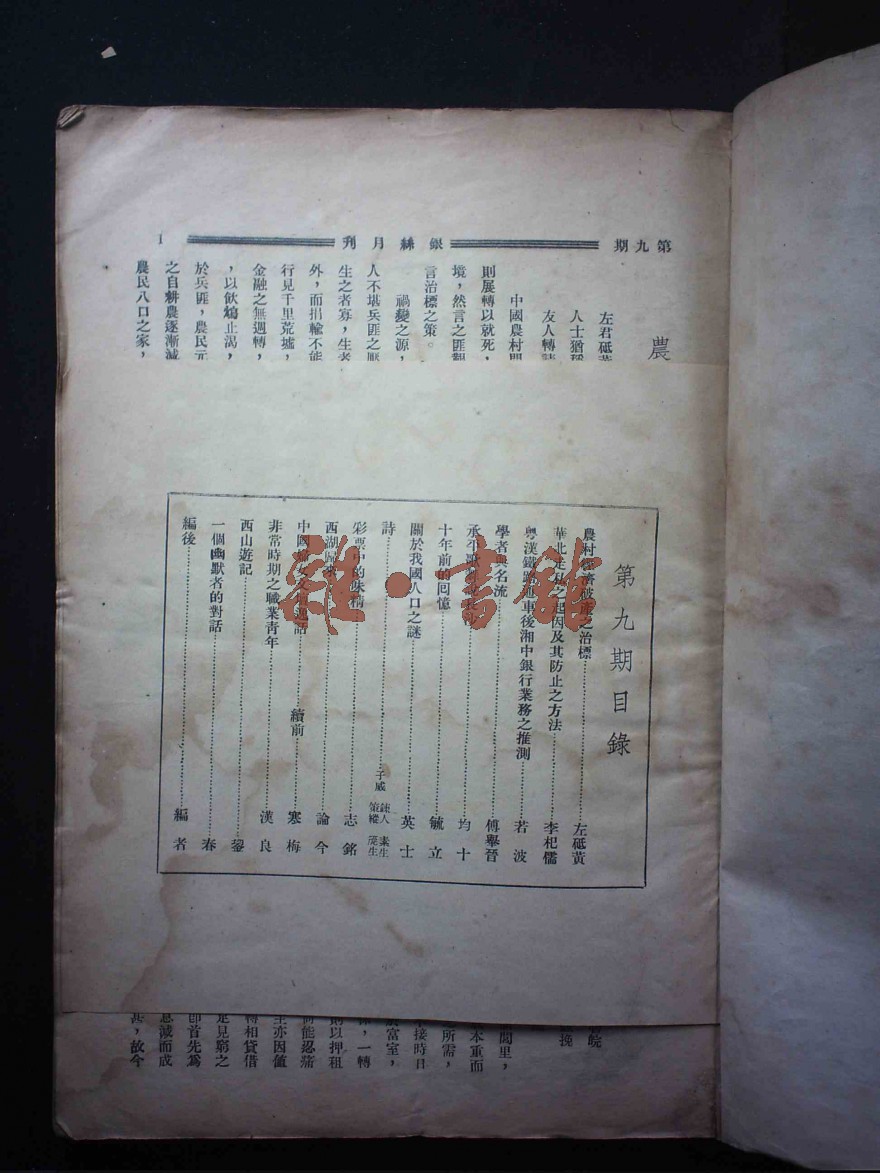 第九期
銀絲月刊
1
農
左君砥黃
人士猶
友人轉
中國農村
則展轉以就死，
境，然言之匪
言治標之策。
禍變之源，
人不堪兵匪之
生之者寡，生者
外，而捐輸不能
行見千里荒墟，
金融之無週轉，
，以飲鴆止渴，
於兵匪，農民元
之自耕農逐漸減
農民八口之家，
第九期目錄
農村經濟破產之治標 左砥黃
華北走私之起因及其防止之方法 李杞儒
粵漢鐵路通車後湘中銀行業務之推測 若波
學者與名流 傅舉晉
承平 均十
十年前的回憶 毓立
關於我國人口之謎 英士
詩 子威 鈍人 策縱 素生 茂生
彩票中的味精 志銘
西湖歸來 論今
中國婦女 話 續前 寒梅
非常時期之職業青年 漢良
西山遊記 鋆
一個幽默者的對話 春
編後 編者
雜·書館
皖
挽
閭里，
本重而
所需，
接時日
富室，
，一轉
則以押租
能認蒲
亦因值
轉相貸借
足見窮之
即首先為
息減而成
甚，故今